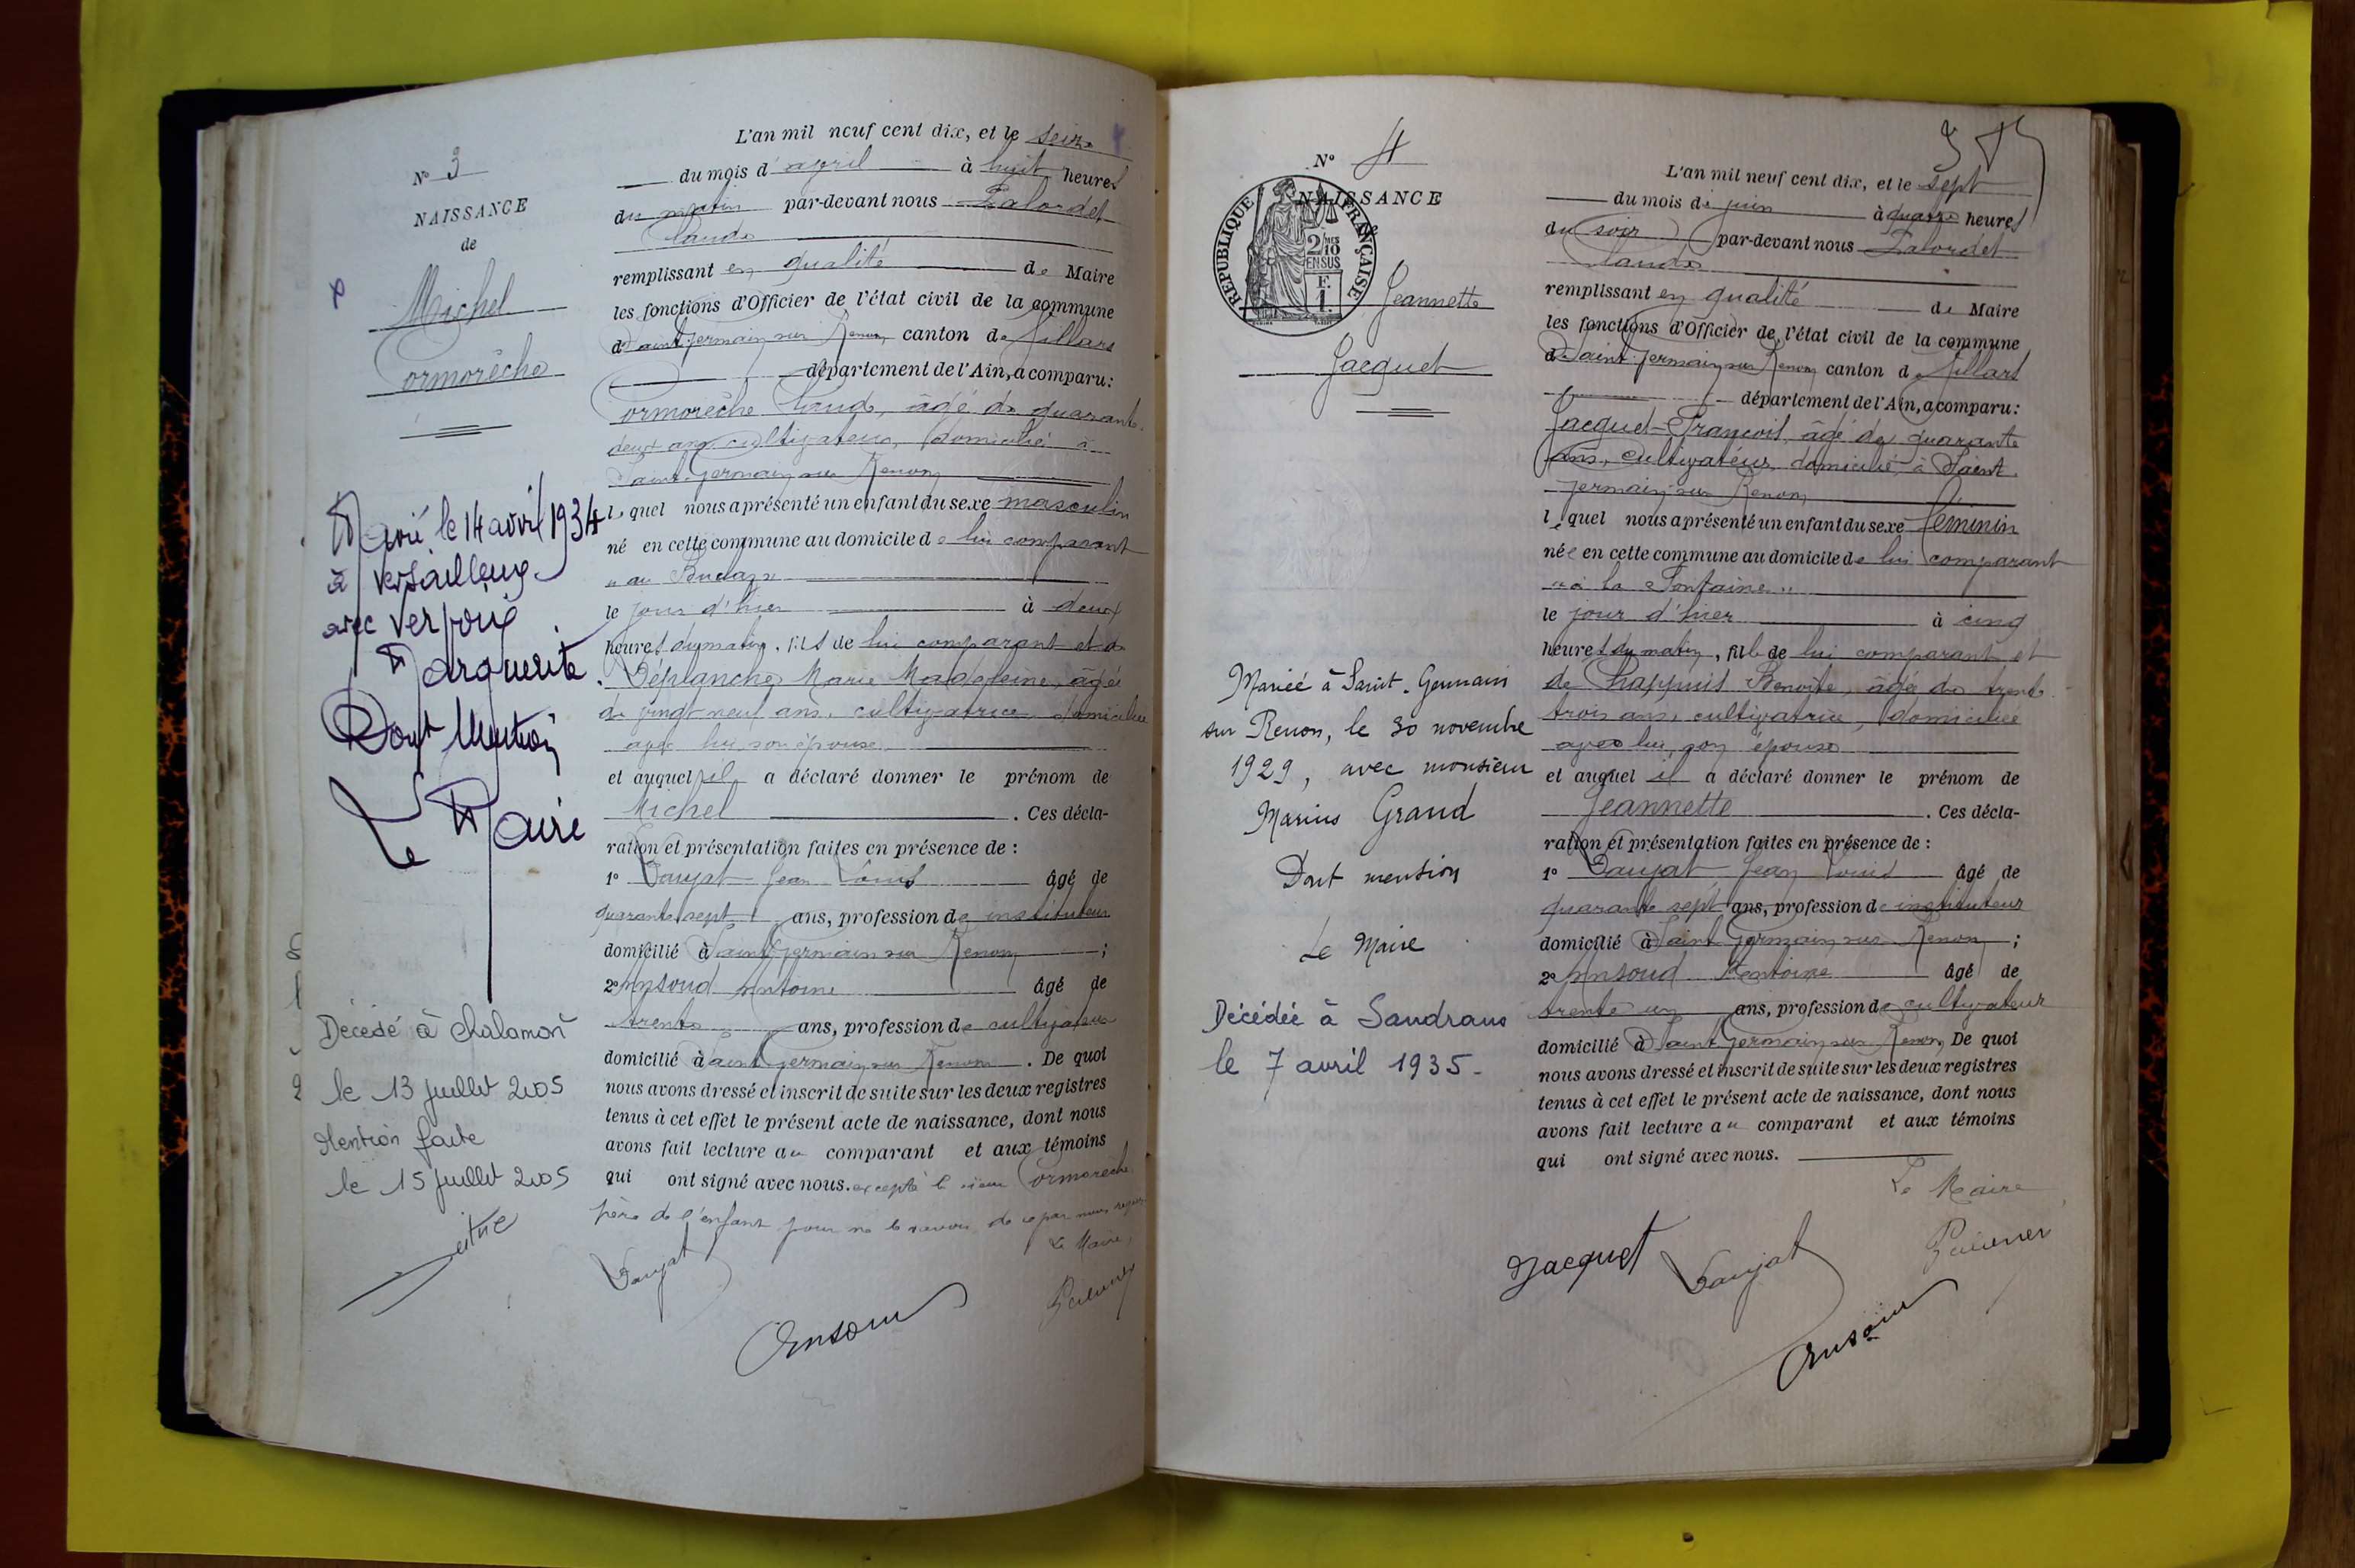 N° 3
NAISSANCE
de
Michel
Cormorèche
Marié le 14 avril 1934
à Versailleux
avec Verjoux
Marguerite
Dont Mention
Le Maire
Décédé à Chalamont
le 13 juillet 2005
Mention faite
le 15 juillet 2005
L'an mil neuf cent dix, et le seize
du mois d'avril à huit heures
du matin par-devant nous Palordet
Claude
remplissant en qualité de Maire
les fonctions d'Officier de l'état civil de la commune
de Saint Germain sur Renon, canton de Villars
département de l'Ain, a comparu:
Cormorèche Claude, âgé de quarante-
deux ans, cultivateur, domicilié à
Saint Germain sur Renon
lequel nous a présenté un enfant du sexe masculin
né en cette commune au domicile de lui comparant
" au
le jour d'hier à deux
heures du matin, fils de lui comparant et de
Déplanche, Marie Madeleine, âgée
de vingt-neuf ans, cultivatrice, domiciliée
avec lui, son épouse
et auquel il a déclaré donner le prénom de
Michel . Ces décla-
ration et présentation faites en présence de :
1° Daujat Jean Louis âgé de
quarante sept ans, profession de instituteur
domicilié à Saint Germain sur Renon ;
2° Ansoud Antoine âgé de
trente ans, profession de cultivateur
domicilié à Saint Germain sur Renon . De quoi
nous avons dressé et inscrit de suite sur les deux registres
tenus à cet effet le présent acte de naissance, dont nous
avons fait lecture au comparant et aux témoins
qui ont signé avec nous. excepté le sieur Cormorèche
père de l'enfant pour ne le savoir, de ce par nous requis
Le Maire,
Daujat
Ansoud
N° 4
NAISSANCE
REPUBLIQUE FRANÇAISE
2/10
EN SUS
Jeannette
Jacquet
Mariée à Saint-Germain
sur Renon, le 30 novembre
1929, avec monsieur
Marius Grand
Dont mention
Le Maire
Décédée à Sandrans
le 7 avril 1935.
L'an mil neuf cent dix, et le sept
du mois de juin à quatre heures
du soir par-devant nous Palordet
Claude
remplissant en qualité de Maire
les fonctions d'Officier de l'état civil de la commune
de Saint Germain sur Renon canton de Villars
département de l'Ain, a comparu:
Jacquet François, âgé de quarante
ans, cultivateur, domicilié à Saint
Germain sur Renon
lequel nous a présenté un enfant du sexe féminin
née en cette commune au domicile de lui comparant
" à la Fontaine "
le jour d'hier à cinq
heures du matin, fille de lui comparant et
de Chappuis Benoîte, âgée de trente-
trois ans, cultivatrice, domiciliée
avec lui, son épouse
et auquel il a déclaré donner le prénom de
Jeannette . Ces décla-
ration et présentation faites en présence de :
1° Daujat Jean Louis âgé de
quarante sept ans, profession de instituteur
domicilié à Saint Germain sur Renon ;
2° Ansoud Antoine âgé de
trente un ans, profession de cultivateur
domicilié à Saint Germain sur Renon, De quoi
nous avons dressé et inscrit de suite sur les deux registres
tenus à cet effet le présent acte de naissance, dont nous
avons fait lecture au comparant et aux témoins
qui ont signé avec nous.
Le Maire
Jacquet Daujat
Ansoud